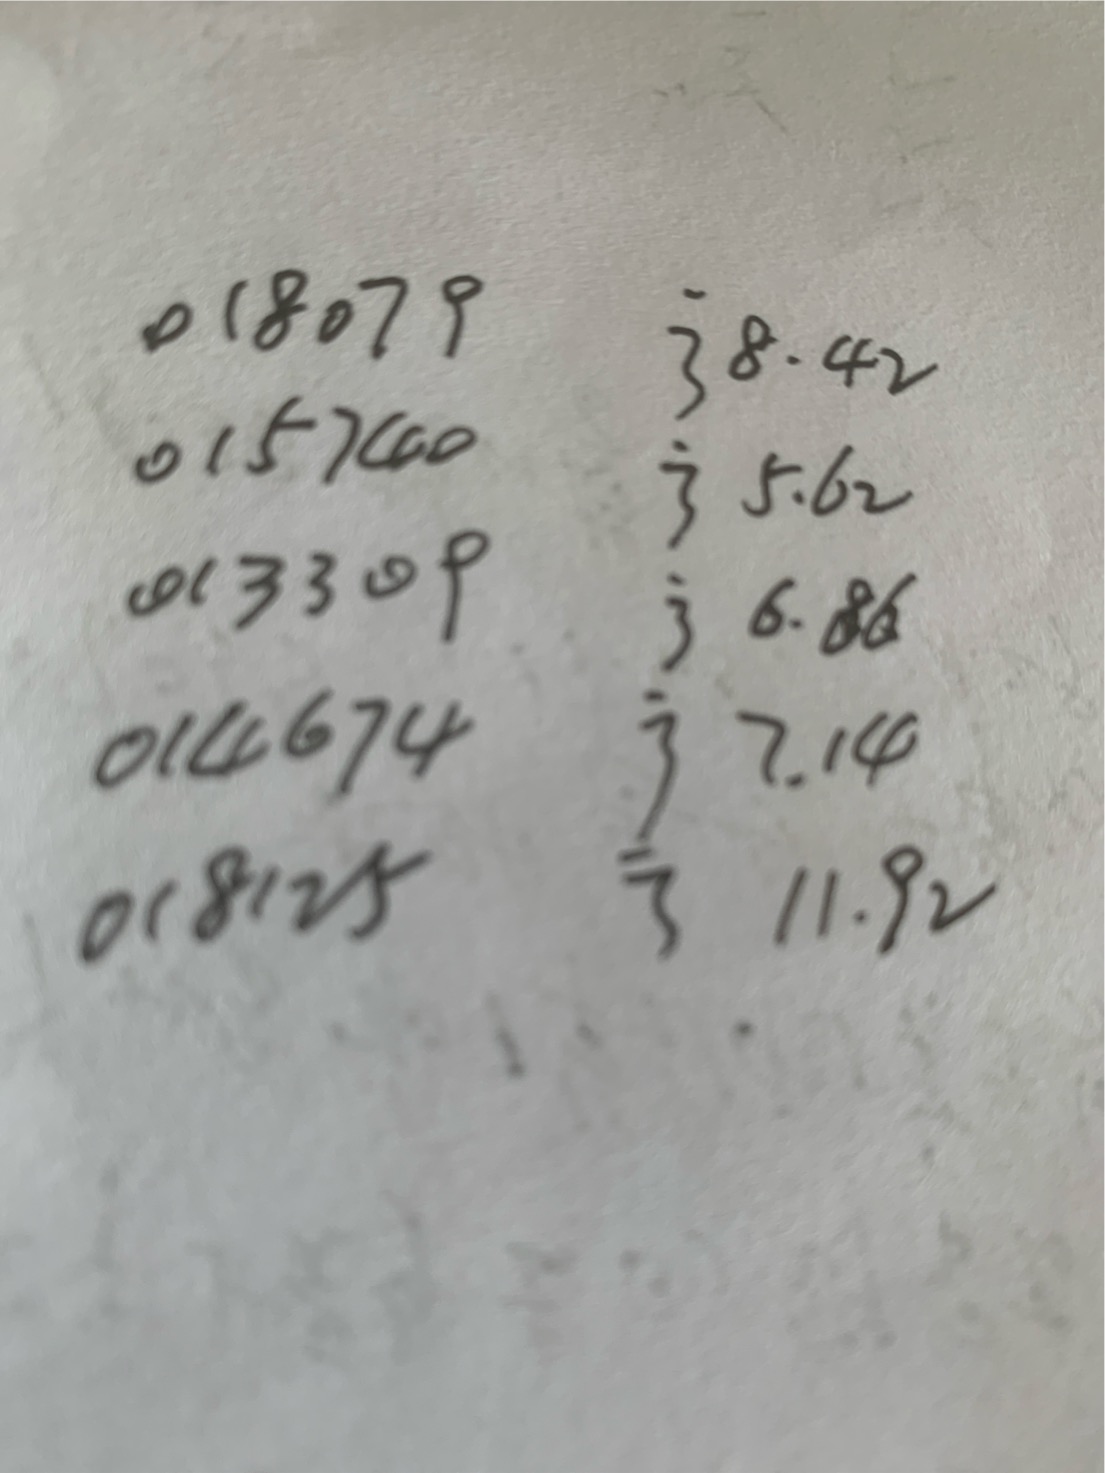 018079 3 8.42
015740 3 5.62
013309 3 6.86
014674 3 7.14
018125 3 11.92